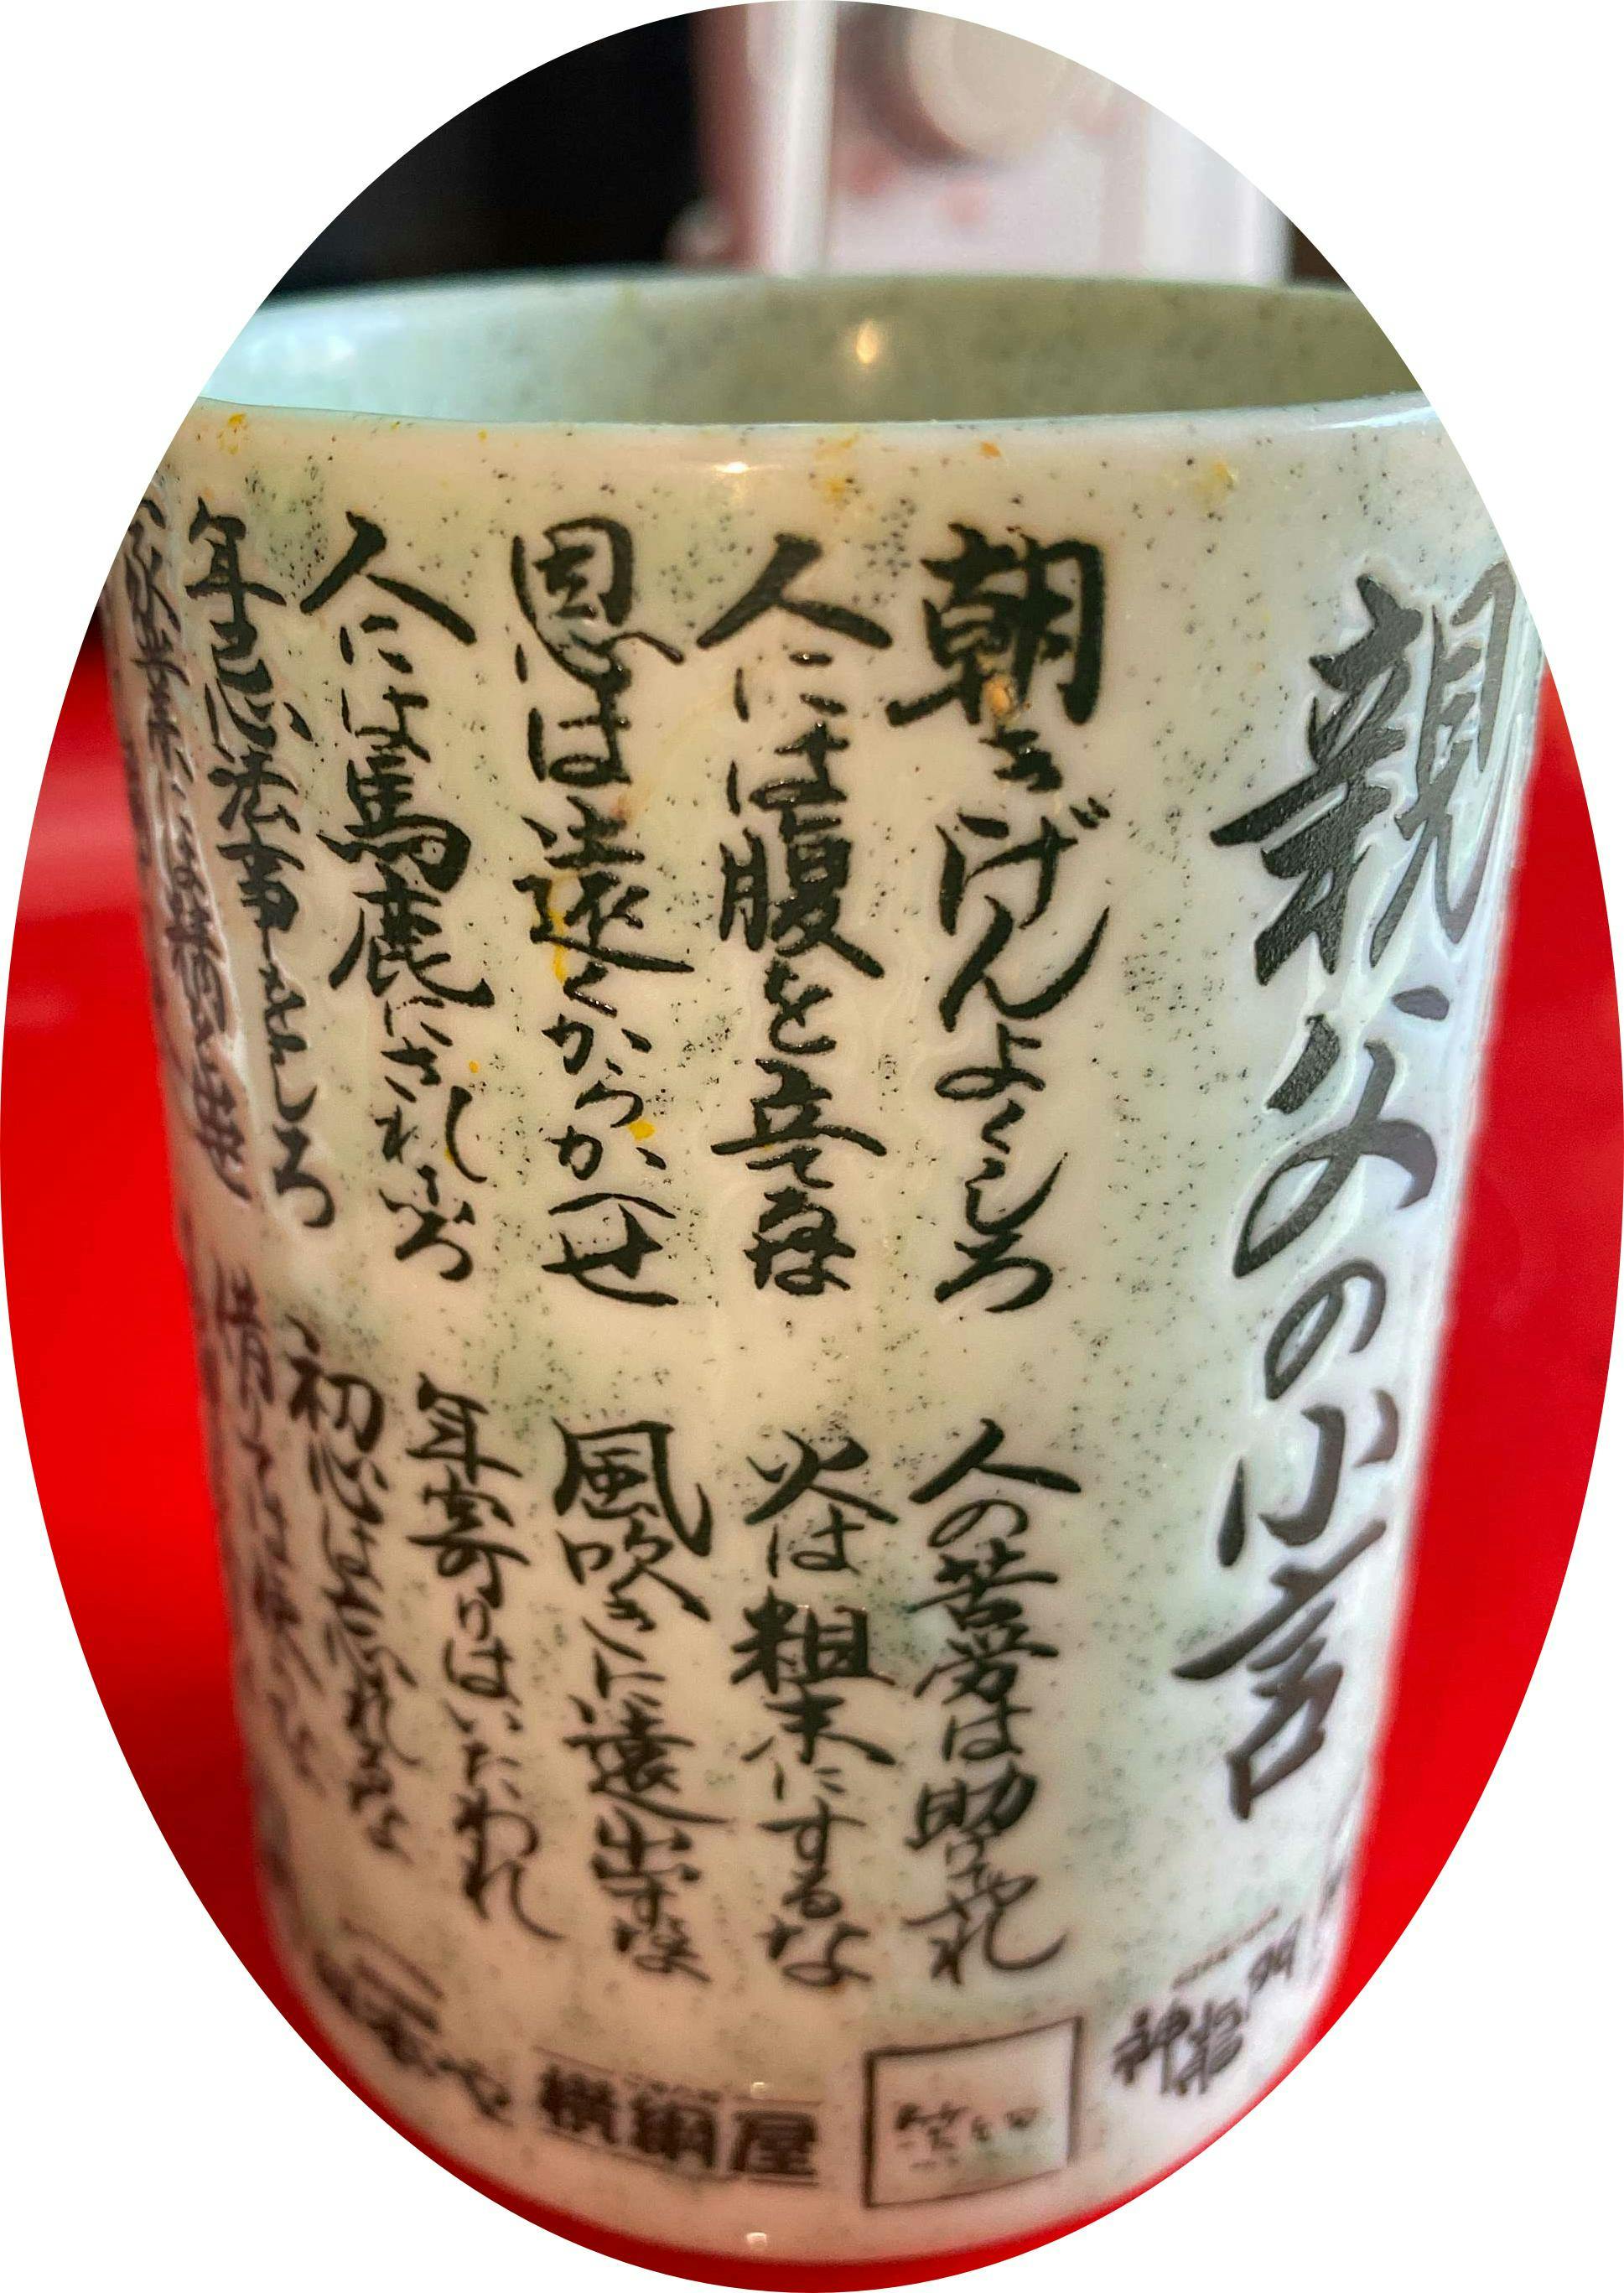 親父の小言
朝きげんよくしろ
人には腹を立てるな
恩は遠くからかへせ
人には馬鹿にされろ
年忌法事をしろ
人の苦労は助けてやれ
火は粗末にするな
風吹きに遠出するな
年寄りはいたわれ
初心は忘れるな
横綱屋